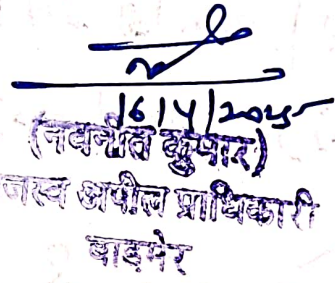 16/4/2025
(नवनीत कुमार)
जस्व अपील प्राधिकारी
बाड़मेर